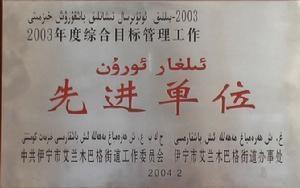 2003-يىللىق ئۇنۋېرسال نىشانلىق باشقۇرۇش خىزمىتى
2003年度综合目标管理工作
ئىلغار ئورۇن
先进单位
中共伊宁市艾兰木巴格街道工作委员会 伊宁市艾兰木巴格街道办事处
2004.2